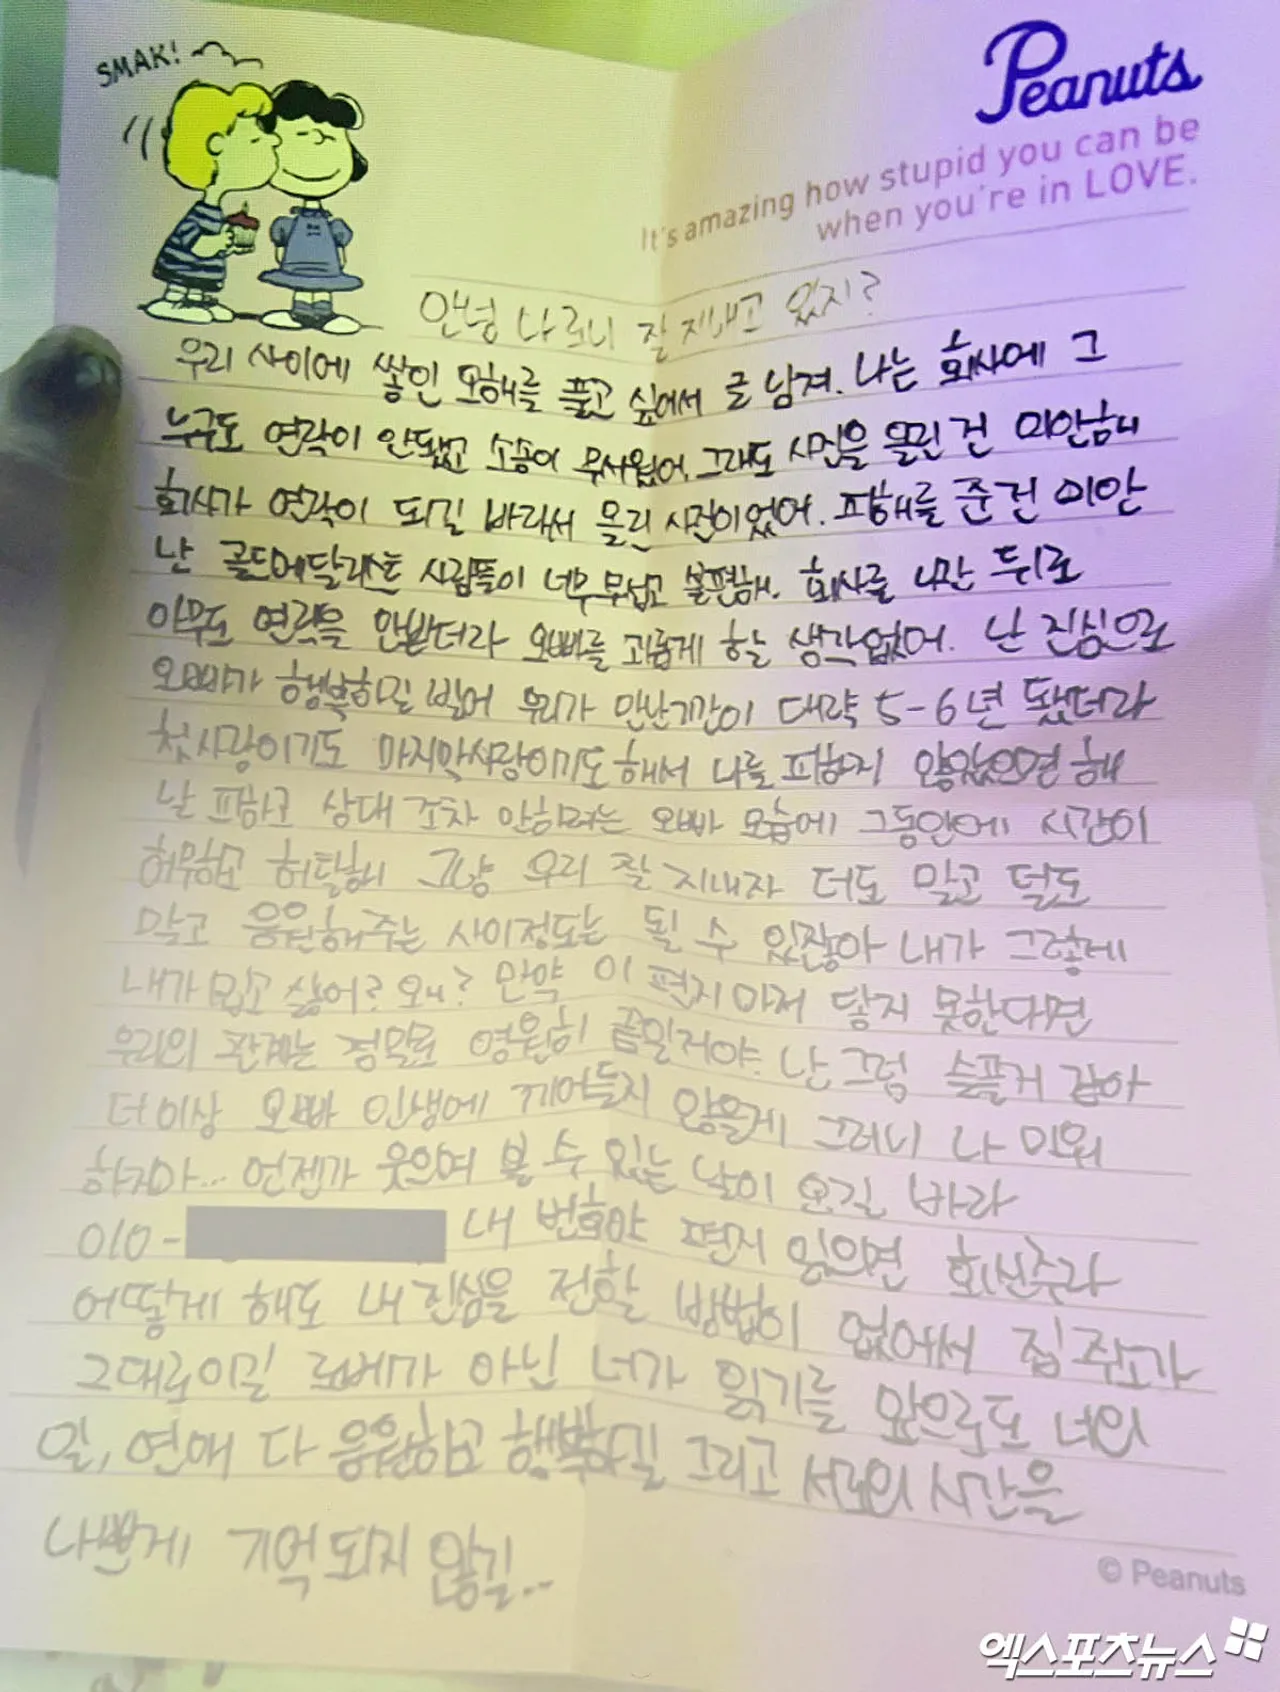 SMAK!
Peanuts
It's amazing how stupid you can be
when you're in LOVE.
안녕 나 로니 잘 지내고 있지?
우리 사이에 쌓인 오해를 풀고 싶어서 글 남겨. 나는 회사에 그
누구도 연락이 안됐고 소송이 무서웠어. 그래도 사진을 올린 건 미안해
회사가 연락이 되길 바라서 올린 사진이었어. 피해를 준건 미안
난 골드메달리스트 사람들이 너무 무섭고 불편해. 회사를 나간 뒤로
아무도 연락을 안받더라 오빠를 괴롭게 하눌 생각없어. 난 진심으로
오빠가 행복하길 빌어 우리가 만난기간이 대략 5-6년 됐더라
첫사랑이기도 마지막사랑이기도 해서 나를 피하지 않았으면 해
날 피하고 상대 조차 안하려는 오빠 모습에 그동안에 시간이
허무하고 허탈해 그냥 우리 잘 지내자 더도 말고 덜도
말고 응원해주는 사이정도는 될 수 있잖아 내가 그렇게
내가 밉고 싫어? 왜? 만약 이 편지마저 닿지 못한다면
우리의 관계는 정말로 영원히 끝일거야. 난 그럼 슬플거 같아
더이상 오빠 인생에 끼어들지 않을게 그러니 나 미워
하지마... 언젠가 웃으며 볼 수 있는 날이 오길 바라
010- 내 번호야 편지 읽으면 회신주라
어떻게 해도 내 진심을 전할 방법이 없어서 집 주소가
그대로이길 로베가 아닌 너가 읽기를 앞으로도 너의
일, 연애 다 응원하고 행복하길 그리고 서로의 시간을
나쁘게 기억되지 않길..
© Peanuts
엑스포츠뉴스